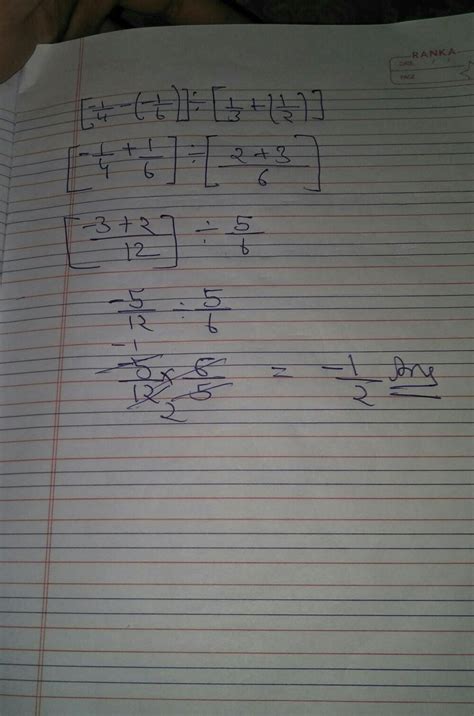 RANKA
DATE / /
PAGE
[-1/4 - (-1/6)] ÷ [1/3 + (1/2)]
[-1/4 + 1/6] ÷ [2+3/6]
[-3+2/12] ÷ 5/6
-5/12 ÷ 5/6
-1
-5/12 × 6/5 = -1/2 Ans
2